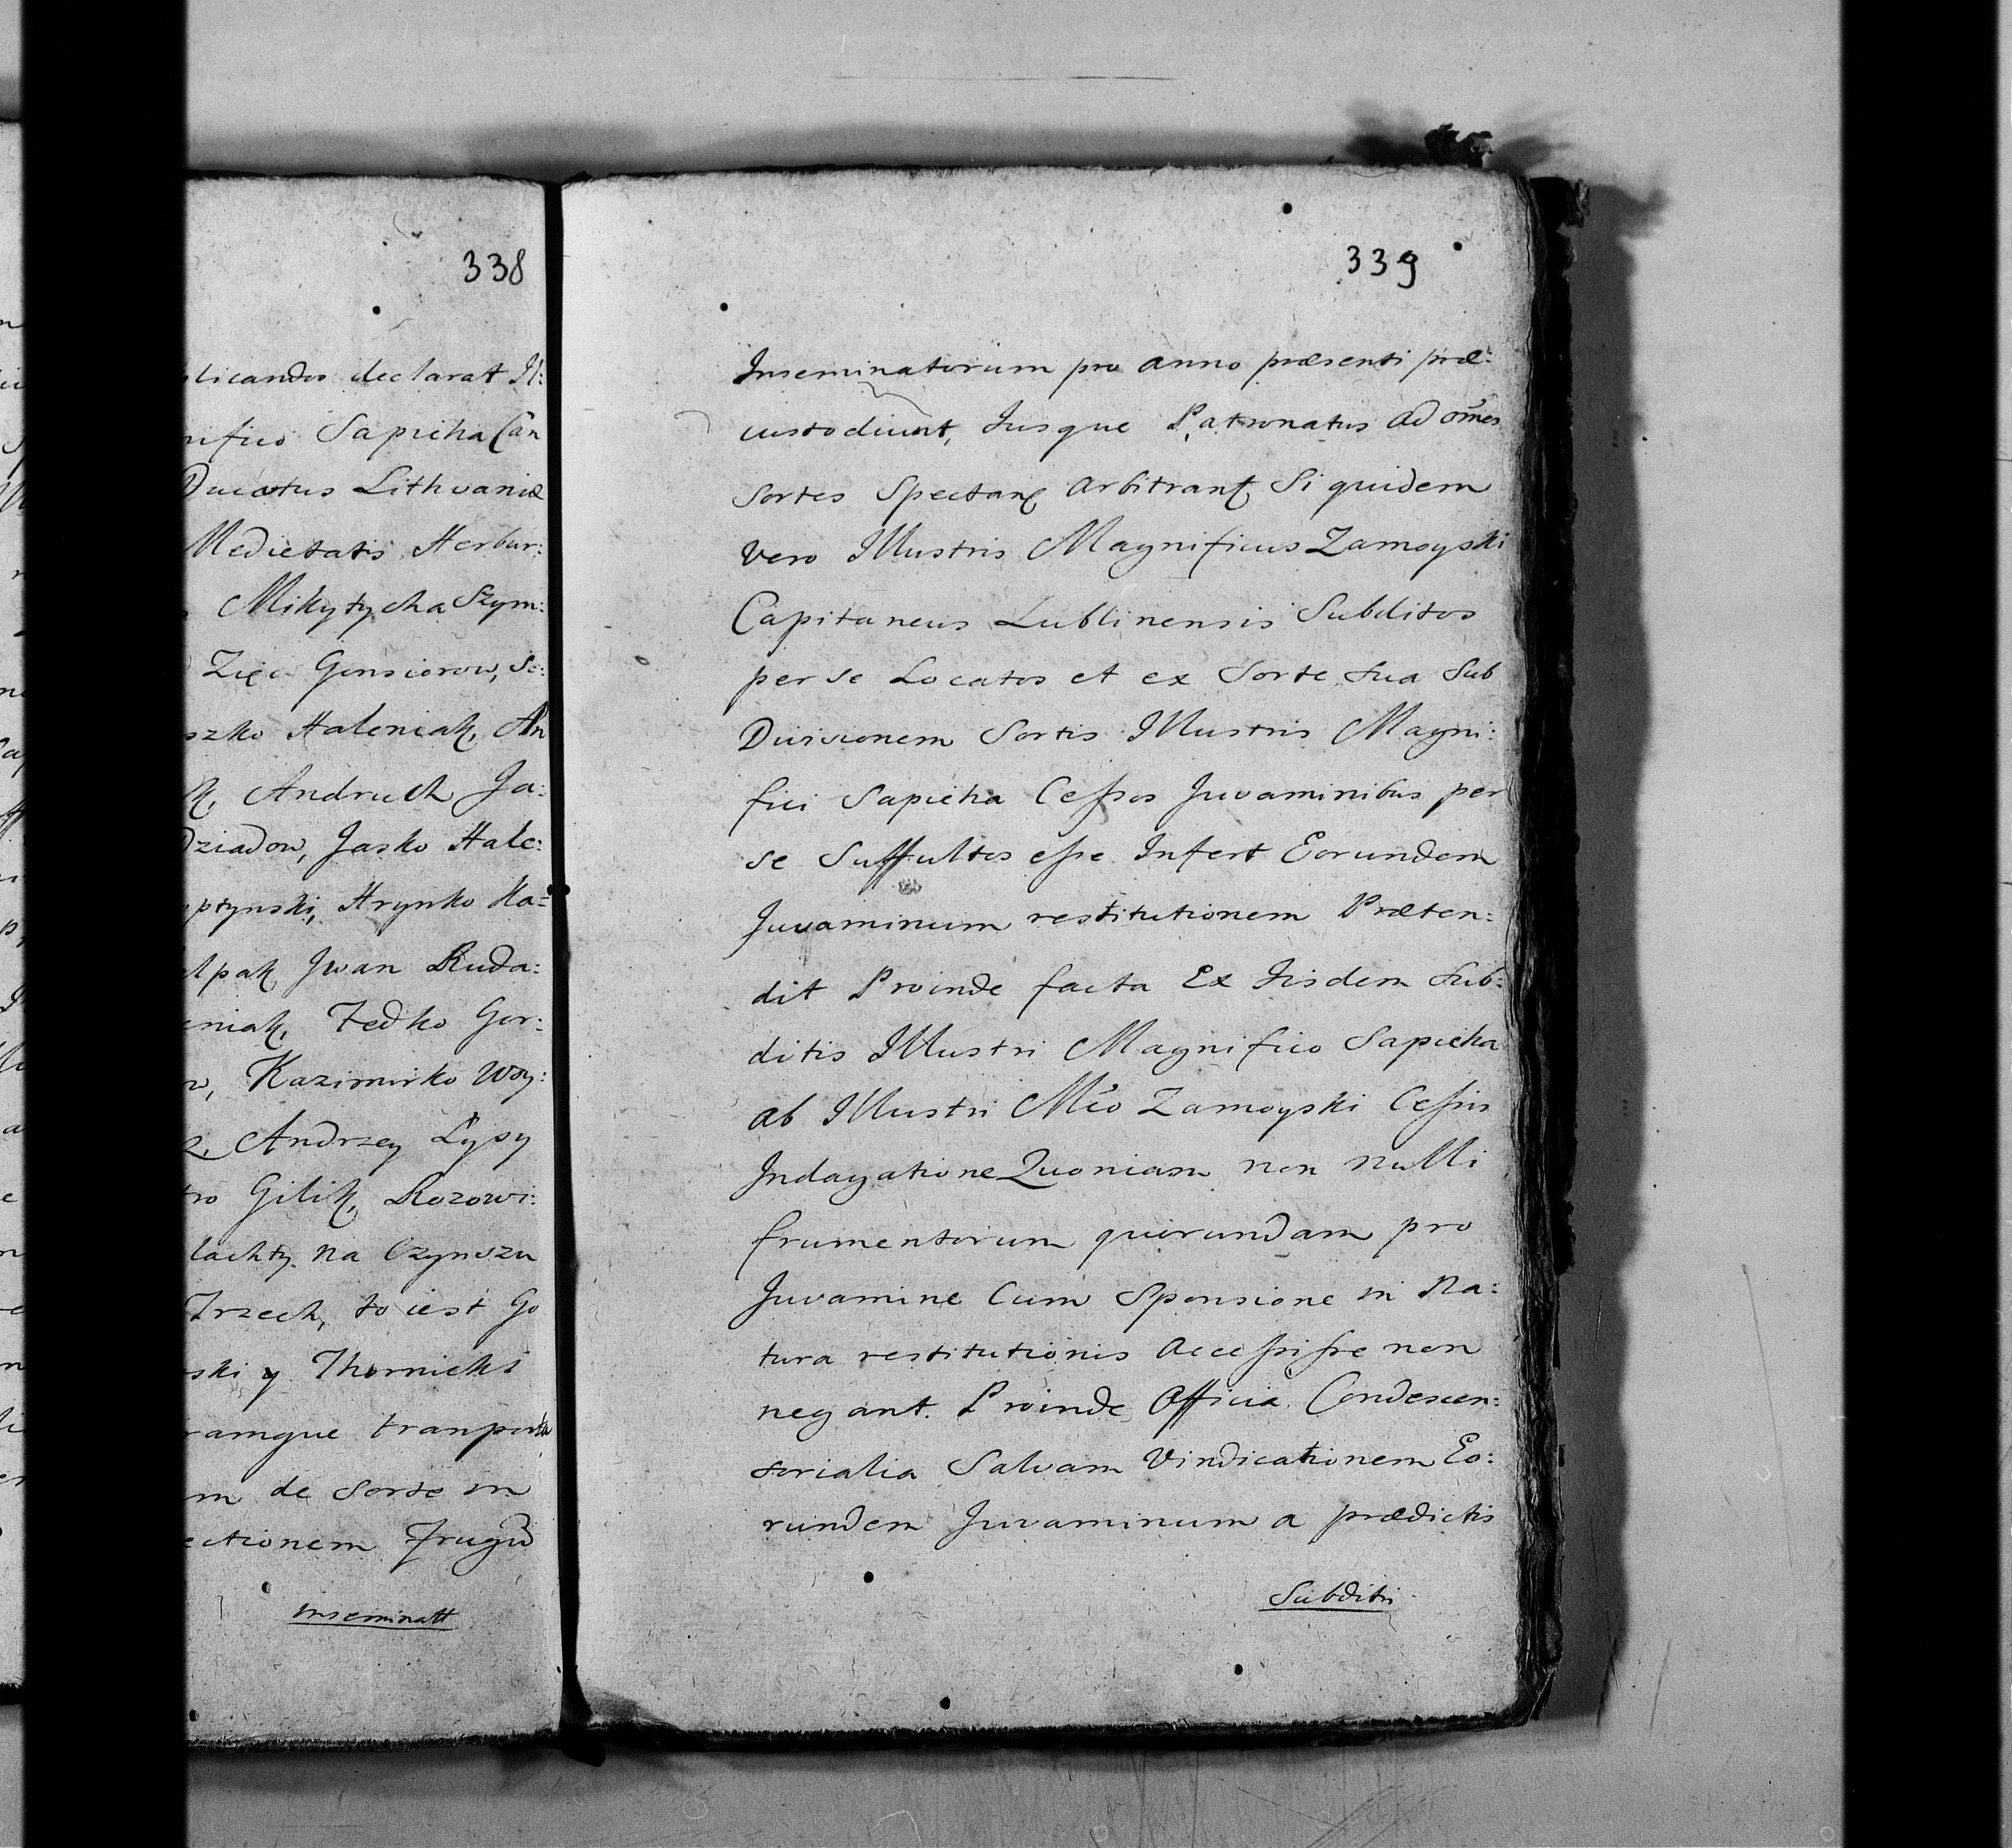 338
licandis declarat Il:
nifico Sapieha Can
Ducatus Lithvaniæ
Medietatis Herbur:
Mikytycha Szym:
Zięc Gonsiorow, Se:
szko Haleniak, An
k, Andruch Ja:
Dziadow, Jasko Hale:
ptynski, Hrynko Ka=
lpak Jwan Ruda:
eniak, Fedko Gor:
w, Kazimirko Woy:
z, Andrzey Łysy
tro Gilik, Rozowi:
lachty na Czynszu
Trzech, to iest Go
ski y Thornicki
ramque
m de Sorte in
ectionem Frugū
inseminatt
339
Inseminatorum pro anno præsenti præ:
custodiunt, Jusque Patronatus ad oṁes
Sortes Spectare arbitrant, Siquidem
Vero Illustris Magnificus Zamoyski
Capitaneus Lublinensis Subditos
per se Locatos et ex Sorte Sua Sub
Divisionem Sortis Illustris Magni:
fici Sapieha Cessos Juvaminibus per
se Suffultos esse Infert Eorundem
Juvaminum restitutionem Præten:
dit Proinde facta Ex Iisdem Sub:
ditis Illustri Magnifico Sapieha
ab Illustri Mco Zamoyski Cessis
Indagatione Quoniam non nulli
frumentorum quorundam pro
Juvamine Cum Sponsione in Na:
tura restitutionis accessisse non
negant. Proinde Officia Condescen:
sorialia Salvam Vindicationem Eo:
rundem Juvaminum a prædictis
Subditis